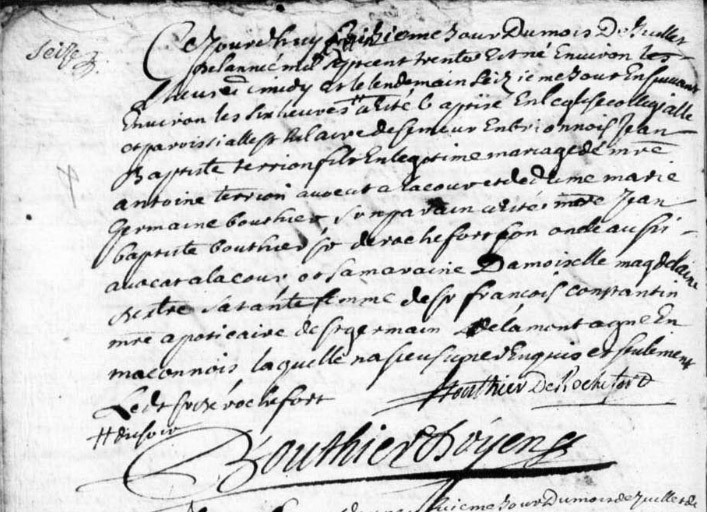 Cejourdhuy seizieme Jour Du mois De Juillet
De lannee mil sept cent trente Est né Environ les
heures midy et le lendemain seizieme Jour Ensuivant
Environ les six heures # a été baptisé En leglise collegialle
et parroissialle st hilaire de semeur En brionnois Jean
Baptiste terrion fils En legitime mariage de mre
antoine terrion avocat a la cour et de dame marie
germaine bouthier son parain a été mre Jean
baptiste bouthier sr de rochefort son oncle aussi
avocat a la cour et sa maraine Damoiselle magdelaine
sa tante femme de sr françois constantin
mre apoticaire de st germain de la montagne En
maconnois laquelle na sceu signer Enquis et seulement
Ledt sr de rochefort
Bouthier De Rochefort
# du soir
Bouthier Doyen
Juillet de